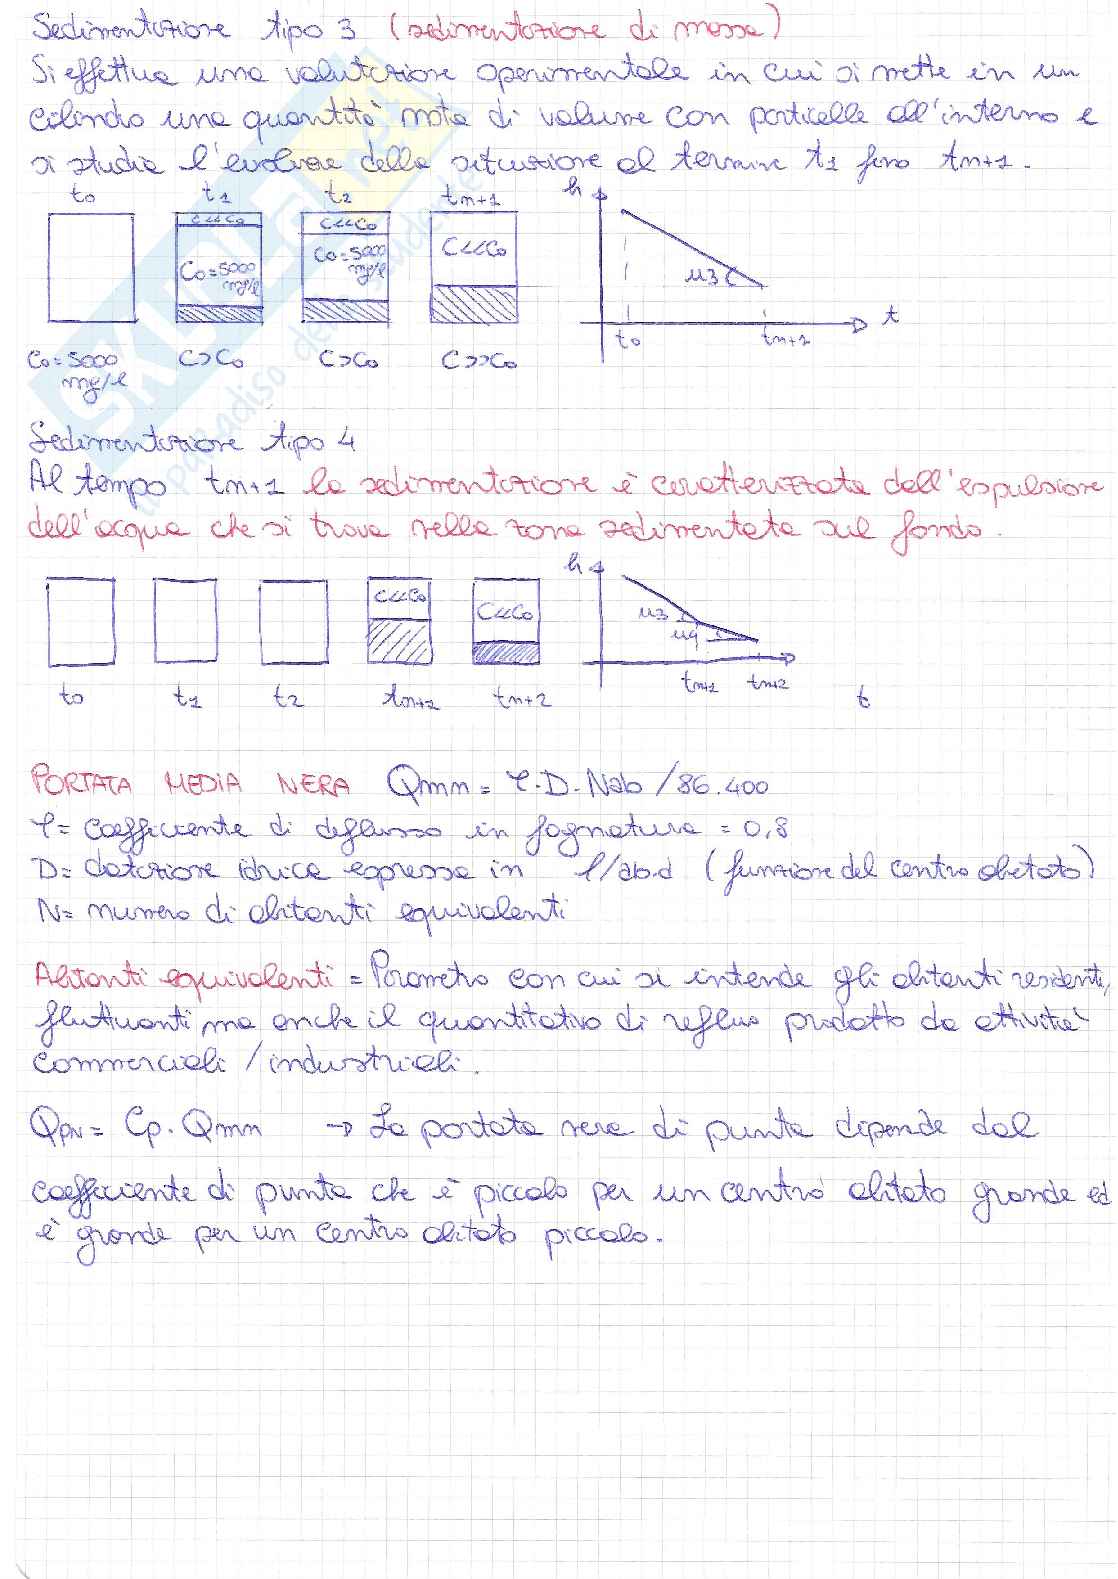 Sedimentazione tipo 3 (sedimentazione di massa)
Si effettua una valutazione sperimentale in cui si mette in un
cilindro una quantità nota di volume con particelle all'interno e
si studia l'evolvere della situazione al termine t1 fino tn+1.
t0 t1 t2 tn+1
h
C<<C0 C<<C0 C<<C0
C0=5000 mg/l C0=5000 mg/l
μ3
t
t0 tn+1
C0=5000 mg/l C>C0 C>C0 C>>C0
Sedimentazione tipo 4
Al tempo tn+1 la sedimentazione è caratterizzata dall'espulsione
dell'acqua che si trova nella zona sedimentata sul fondo.
h
C<<C0 C<<C0
μ3
μ4
t0 t1 t2 tn+1 tn+2
tn+1 tn+2 t
PORTATA MEDIA NERA Qmn = φ·D·Nab/86.400
φ= coefficiente di deflusso in fognatura = 0,8
D= dotazione idrica espressa in l/ab.d (funzione del centro abitato)
N= numero di abitanti equivalenti
Abitanti equivalenti = Parametro con cui si intende gli abitanti residenti,
fluttuanti ma anche il quantitativo di refluo prodotto da attività
commerciali / industriali.
QPN = Cp. Qmn → La portata nera di punta dipende dal
coefficiente di punta che è piccolo per un centro abitato grande ed
è grande per un centro abitato piccolo.
SKUOLA.net
il paradiso dello studente